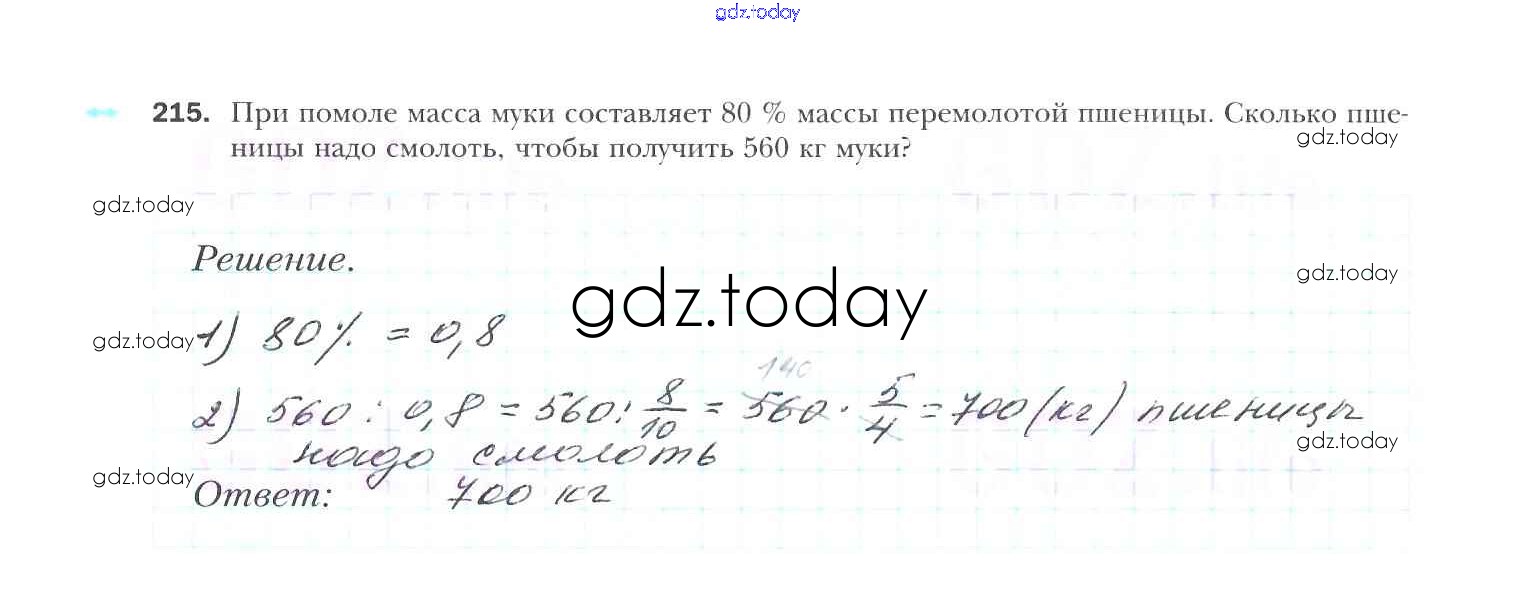 gdz.today
215. При помоле масса муки составляет 80 % массы перемолотой пшеницы. Сколько пше-
ницы надо смолоть, чтобы получить 560 кг муки?
gdz.today
gdz.today
Решение.
gdz.today
gdz.today
1) 80% = 0,8
gdz.today
140
2) 560 : 0,8 = 560 : 8/10 = 560 · 5/4 = 700 (кг) пшеницы
надо смолоть
gdz.today
gdz.today
Ответ: 700 кг